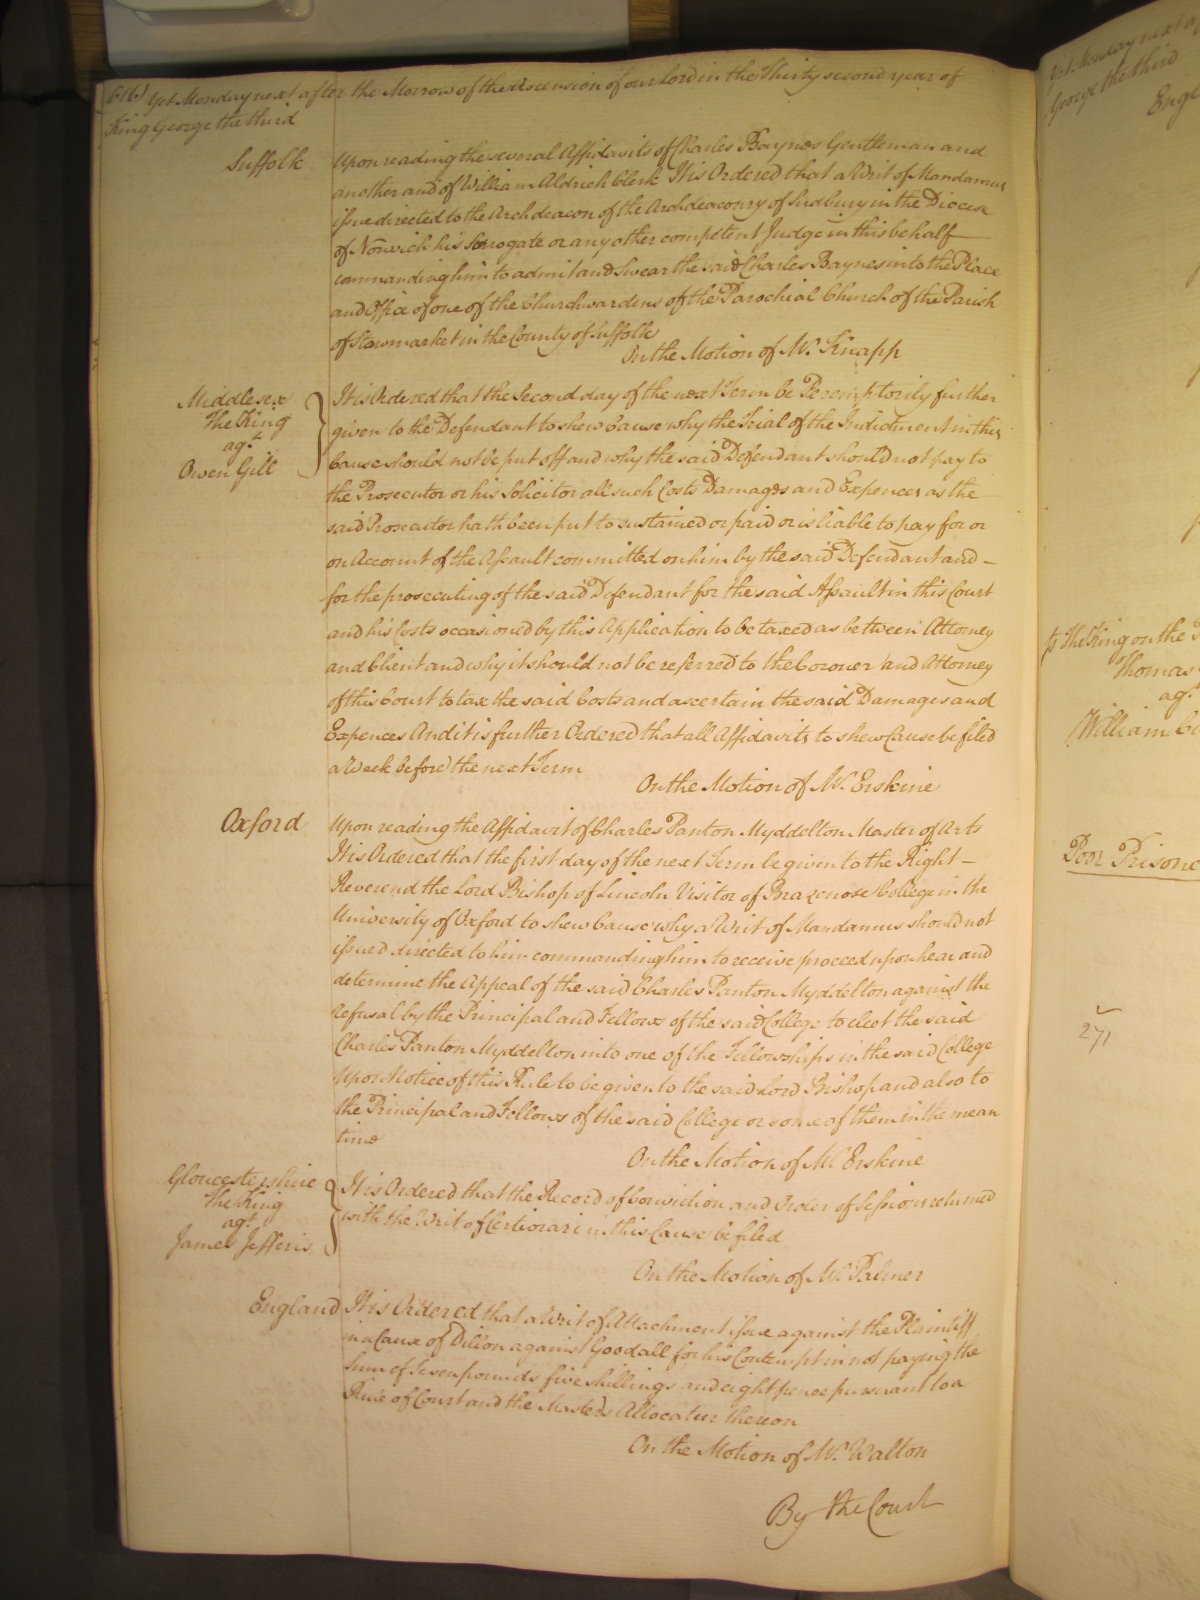 (616) Yet Monday next after the Morrow of the Ascension of our Lord in the Thirty second year of
King George the third
Suffolk
Upon reading the several Affidavits of Charles Baynes Gentleman and
another and of William Aldrich Clerk It is Ordered that a Writ of Mandamus
issue directed to the Archdeacon of the Archdeaconry of Sudbury in the Diocese
of Norwich his Surrogate or any other competent Judge in this behalf
commanding him to admit and swear the said Charles Baynes into the Place
and Office of one of the Churchwardens of the Parochial Church of the Parish
of Stowmarket in the County of Suffolk
On the Motion of Mr. Knapp
Middlesex
The King
agt.
Owen Gill
It is Ordered that the Second day of the next Term be Peremptorily further
given to the Defendant to shew Cause why the Trial of the Indictment in this
Cause should not be put off and why the said Defendant should not pay to
the Prosecutor or his Solicitor all such Costs Damages and Expences as the
said Prosecutor hath been put to sustained or paid or is liable to pay for or
on Account of the Assault committed on him by the said Defendant and
for the prosecuting of the said Defendant for the said Assault in this Court
and his Costs occasioned by this Application to be taxed as between Attorney
and Client and why it should not be referred to the Coroner and Attorney
of this Court to tax the said Costs and ascertain the said Damages and
Expences And it is further Ordered that all Affidavits to shew Cause be filed
a Week before the next Term
On the Motion of Mr. Erskine
Oxford
Upon reading the Affidavit of Charles Panton Myddelton Master of Arts
It is Ordered that the first day of the next Term be given to the Right
Reverend the Lord Bishop of Lincoln Visitor of Brazenose College in the
University of Oxford to shew Cause why a Writ of Mandamus should not
issued directed to him commanding him to receive proceed upon hear and
determine the Appeal of the said Charles Panton Myddelton against the
refusal by the Principal and Fellows of the said College to elect the said
Charles Panton Myddelton into one of the Fellowships in the said College
Upon Notice of this Rule to be given to the said Lord Bishop and also to
the Principal and Fellows of the said College or some of them in the mean
time
On the Motion of Mr. Erskine
Gloucestershire
The King
agt.
James Jefferis
It is Ordered that the Record of Conviction and Order of Session returned
with the Writ of Certiorari in this Cause be filed
On the Motion of Mr. Palmer
England
It is Ordered that a Writ of Attachment issue against the Plaintiff
in a Cause of Dillon against Goodall for his Contempt in not paying the
Sum of Seven pounds five shillings and eight pence pursuant to a
Rule of Court and the Master's Allocatur thereon
On the Motion of Mr. Walton
By the Court
Yet Monday next
George the third
Engl
The King on the
Thomas
agt.
William
Poor Prisone
271